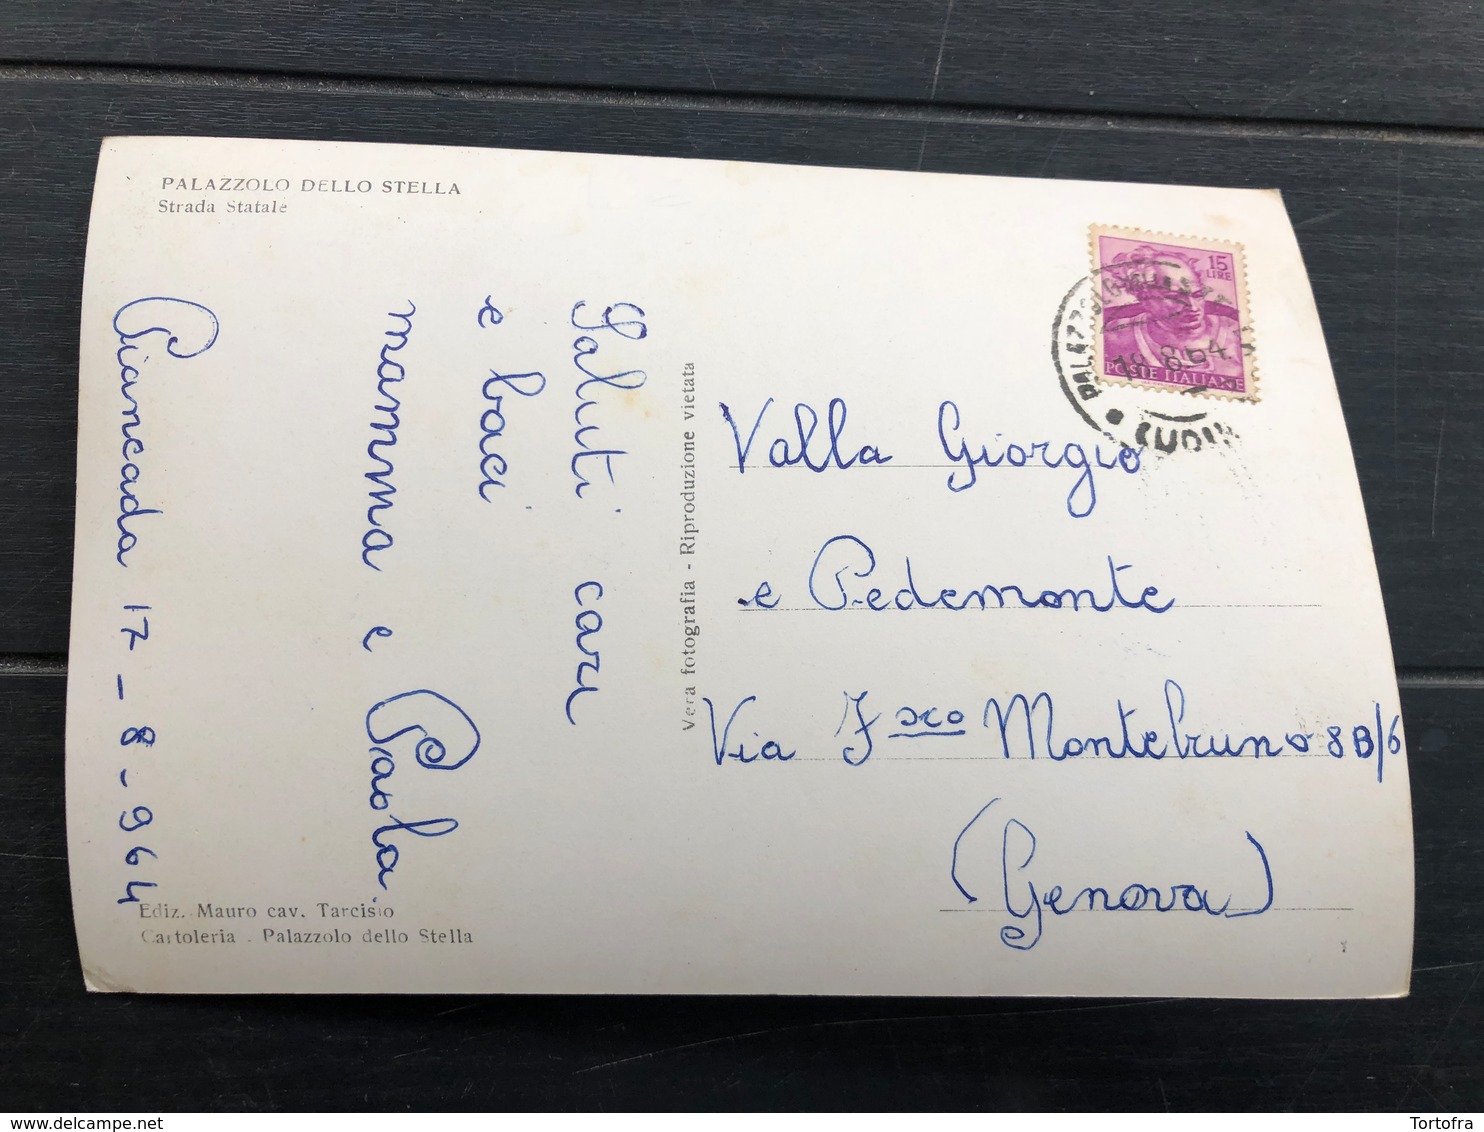 PALAZZOLO DELLO STELLA
Strada Statale
Saluti cari
e baci
mamma e Paola
Piancada 17-8-964
Ediz. Mauro cav. Tarcisio
Cartoleria - Palazzolo dello Stella
Vera fotografia - Riproduzione vietata
15
LIRE
POSTE ITALIANE
18.8.64
Valla Giorgio
e Pedemonte
Via Fsco Montebruno 8B/6
(Genova)
Tortofra